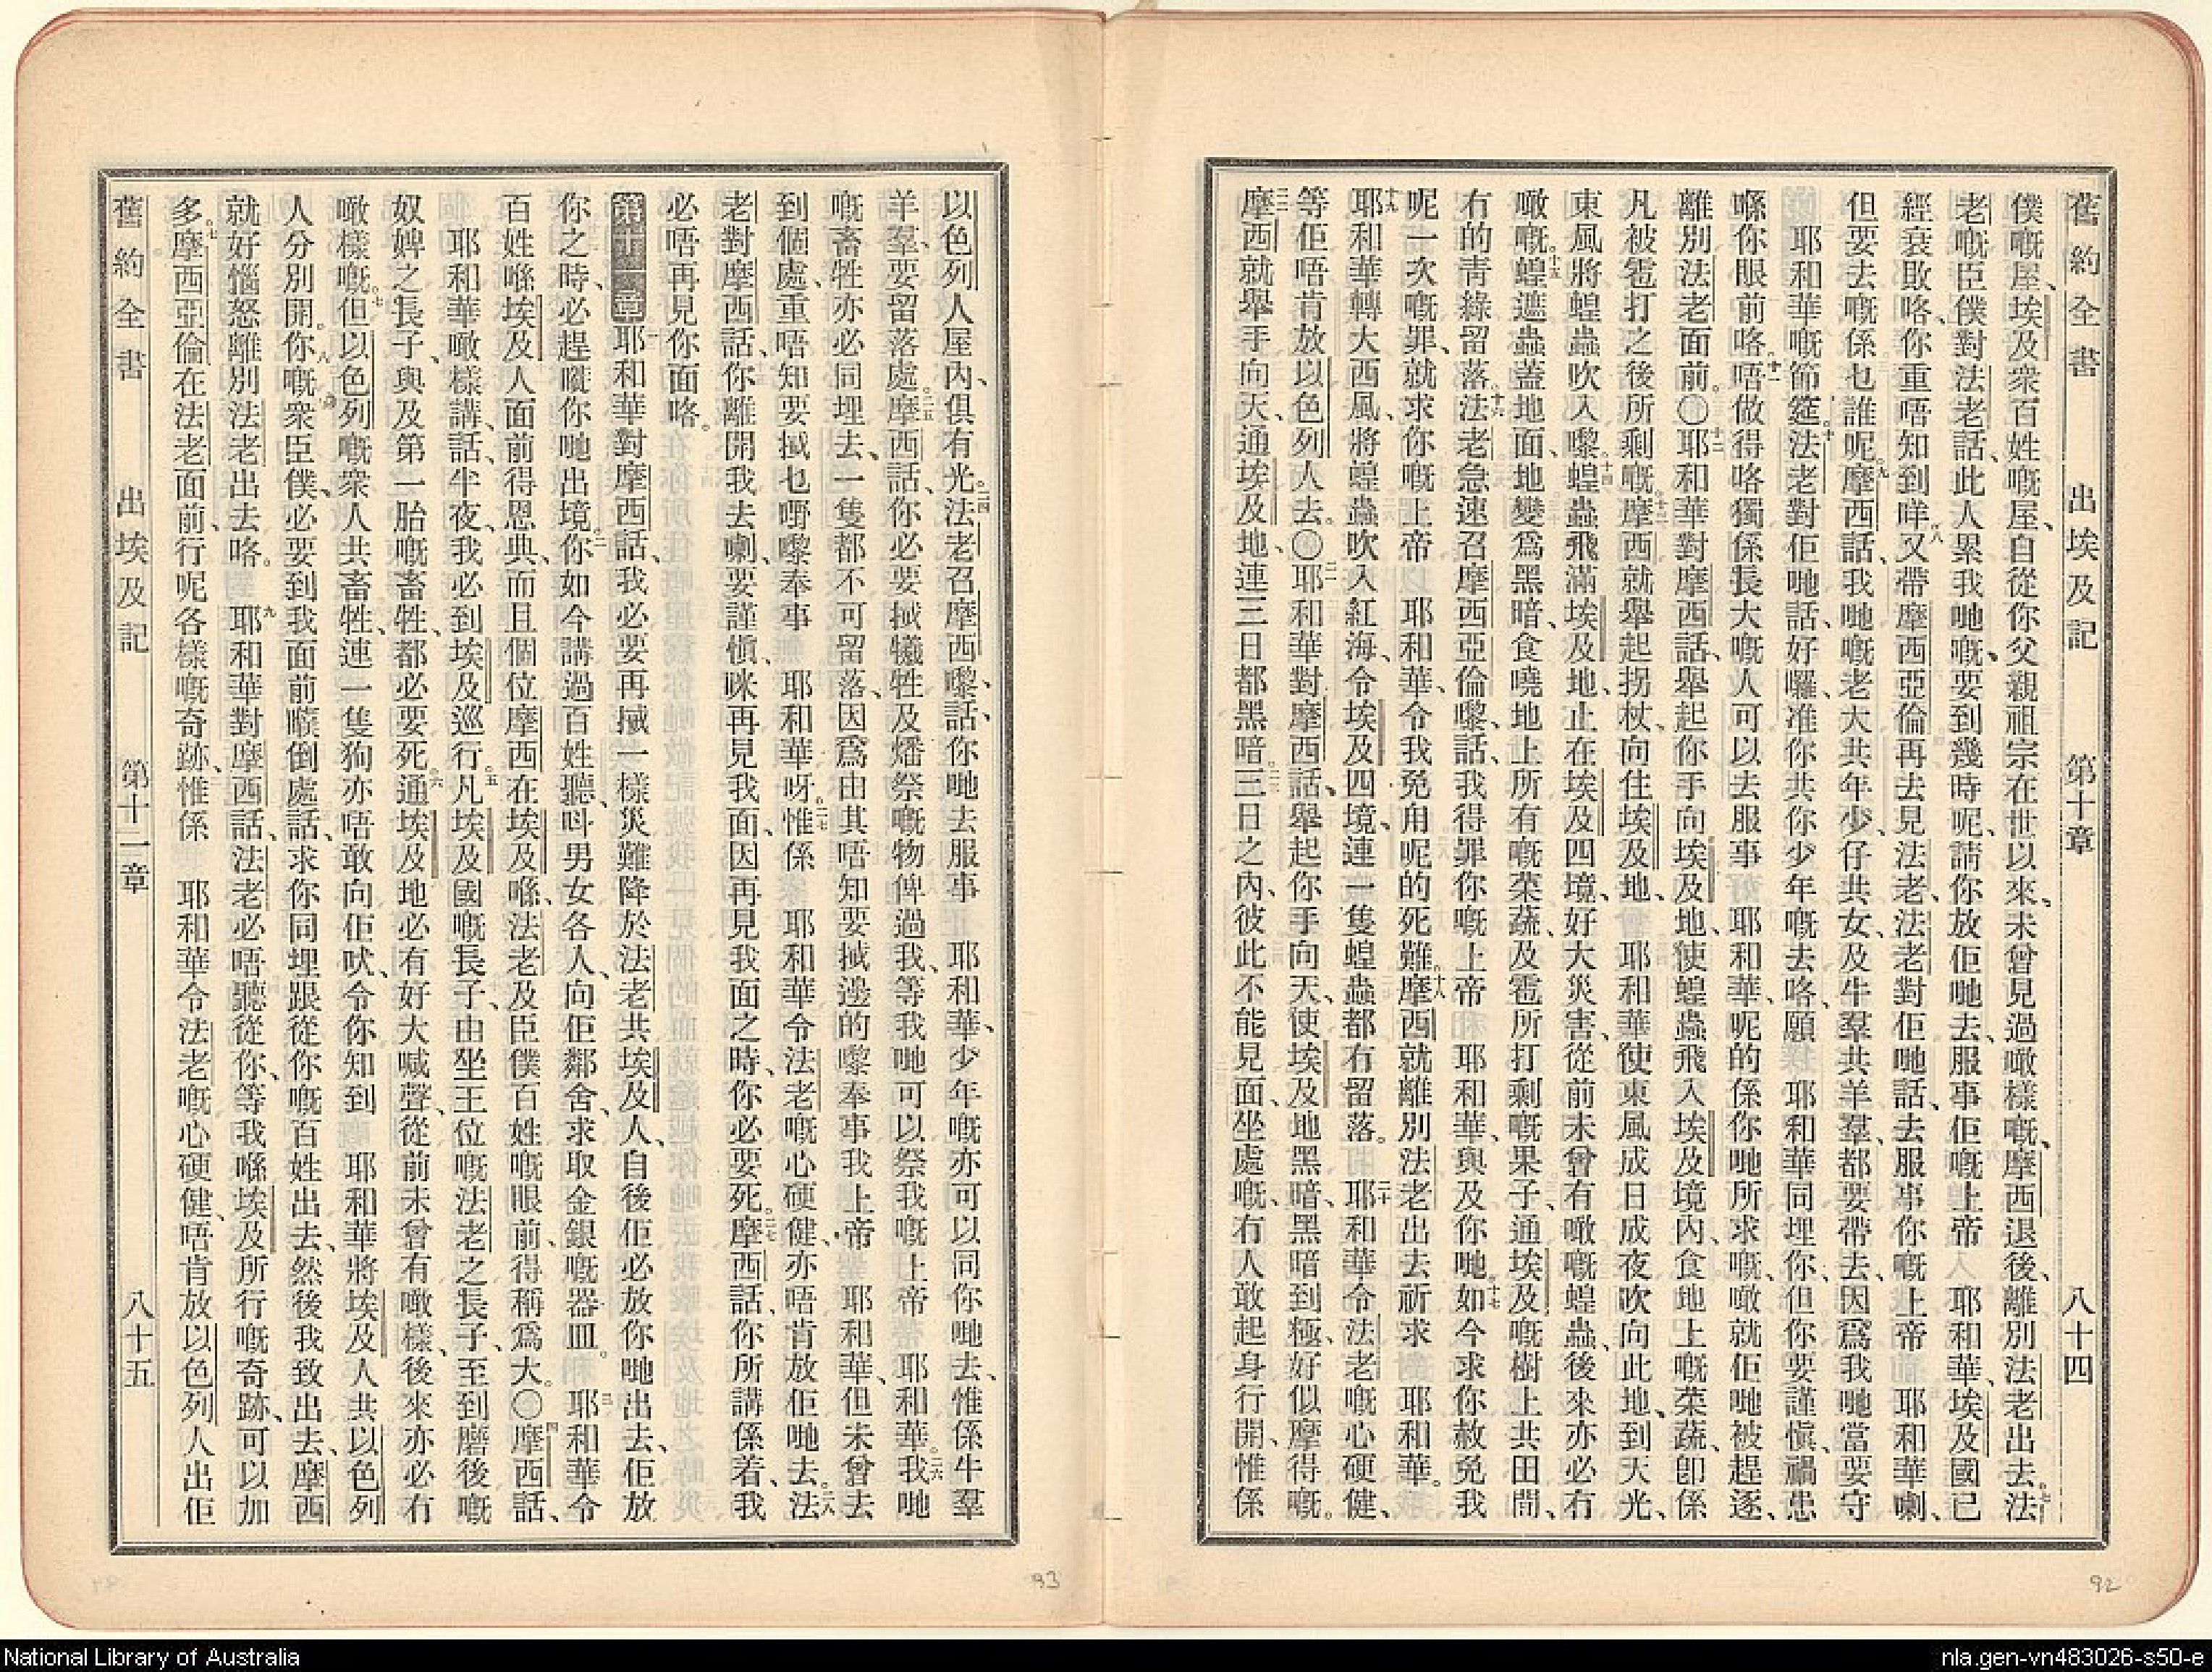 舊約全書 出埃及記 第十章 八十四
僕嘅屋、埃及衆百姓嘅屋、自從你父親祖宗在世以來、未曾見過噉樣嘅、摩西退後、離別法老出去。七法
老嘅臣僕對法老話、此人累我哋嘅、要到幾時呢、請你放佢哋去、服事佢嘅上帝 耶和華、埃及國已
經衰敗咯、你重唔知到咩。八又帶摩西亞倫再去見法老、法老對佢哋話、去服事你嘅上帝 耶和華喇、
但要去嘅係乜誰呢。九摩西話、我哋嘅老大共年少、仔共女、及牛羣共羊羣、都要帶去、因爲我哋當要守
耶和華嘅節筵。十法老對佢哋話、好囉、准你共你少年嘅去咯、願 耶和華同埋你、但你要謹愼、禍患
喺你眼前咯。十一唔做得咯、獨係長大嘅人可以去服事 耶和華、呢的係你哋所求嘅、噉就佢哋被趕逐、
離別法老面前。〇十二耶和華對摩西話、舉起你手向埃及地、使蝗蟲飛入埃及境內、食地上嘅菜蔬、卽係
凡被雹打之後所剩嘅。十三摩西就舉起拐杖、向住埃及地、 耶和華使東風成日成夜吹向此地、到天光、
東風將蝗蟲吹入嚟。十四蝗蟲飛滿埃及地、止在埃及四境、好大災害、從前未曾有噉嘅蝗蟲、後來亦必有
噉嘅。十五蝗蟲遮蓋地面、地變爲黑暗、食嘵地上所有嘅菜蔬、及雹所打剩嘅果子、通埃及嘅樹上共田間、
冇的靑綠留落。十六法老急速召摩西亞倫嚟、話、我得罪你嘅上帝 耶和華、與及你哋。十七如今求你赦免我
呢一次嘅罪、就求你嘅上帝 耶和華、令我免用呢的死難。十八摩西就離別法老出去祈求 耶和華。
十九耶和華轉大西風、將蝗蟲吹入紅海、令埃及四境、連一隻蝗蟲都冇留落。二十耶和華令法老嘅心硬健、
等佢唔肯放以色列人去。〇二一耶和華對摩西話、舉起你手向天、使埃及地黑暗、黑暗到極、好似摩得嘅。
二二摩西就舉手向天、通埃及地、連三日都黑暗。二三三日之內、彼此不能見面、坐處嘅、冇人敢起身行開、惟係
以色列人屋內、俱有光。二四法老召摩西嚟、話、你哋去服事 耶和華、少年嘅亦可以同你哋去、惟係牛羣
羊羣、要留落處。二五摩西話、你必要搣犧牲及燔祭嘅物俾過我、等我哋可以祭我嘅上帝 耶和華。二六我哋
嘅畜牲亦必同埋去、一隻都不可留落、因爲由其唔知要搣邊的嚟奉事我上帝 耶和華、但未曾去
到個處、重唔知要搣乜嘢嚟奉事 耶和華呀。二七惟係 耶和華令法老嘅心硬健、亦唔肯放佢哋去。二八法
老對摩西話、你離開我去喇、要謹愼、咪再見我面、因再見我面之時、你必要死。二九摩西話、你所講係着、我
必唔再見你面咯。
第十一章 一耶和華對摩西話、我必要再搣一樣災難降於法老共埃及人、自後佢必放你哋出去、佢放
你之時、必趕嘥你哋出境。二你如今講過百姓聽、呌男女各人、向佢鄰舍、求取金銀嘅器皿。三耶和華令
百姓喺埃及人面前得恩典、而且個位摩西在埃及喺法老及臣僕百姓嘅眼前、得稱爲大。〇四摩西話、
耶和華噉樣講、話、半夜、我必到埃及巡行。五凡埃及國嘅長子、由坐王位嘅法老之長子、至到磨後嘅
奴婢之長子、與及第一胎嘅畜牲、都必要死。六通埃及地必有好大喊聲、從前未曾有噉樣、後來亦必冇
噉樣嘅。七但以色列嘅衆人共畜牲、連一隻狗亦唔敢向佢吠、令你知到 耶和華將埃及人共以色列
人分別開。八你嘅衆臣僕、必要到我面前㬋倒處、話、求你同埋跟從你嘅百姓出去、然後我致出去、摩西
就好惱怒離別法老出去咯。 九耶和華對摩西話、法老必唔聽從你、等我喺埃及所行嘅奇跡、可以加
多。十摩西亞倫在法老面前、行呢各樣嘅奇跡、惟係 耶和華令法老嘅心硬健、唔肯放以色列人出佢
舊約全書 出埃及記 第十二章 八十五
93
92
National Library of Australia
nla.gen-vn483026-s50-e